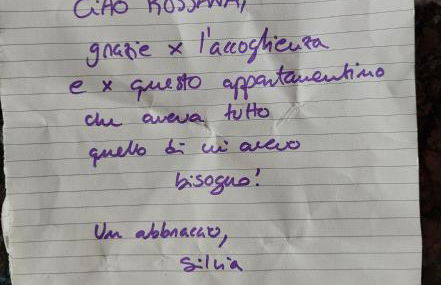 CIAO ROSSANA,
grazie x l'accoglienza
e x questo appartamentino
che aveva tutto
quello di cui avevo
bisogno!
Un abbraccio,
Silvia